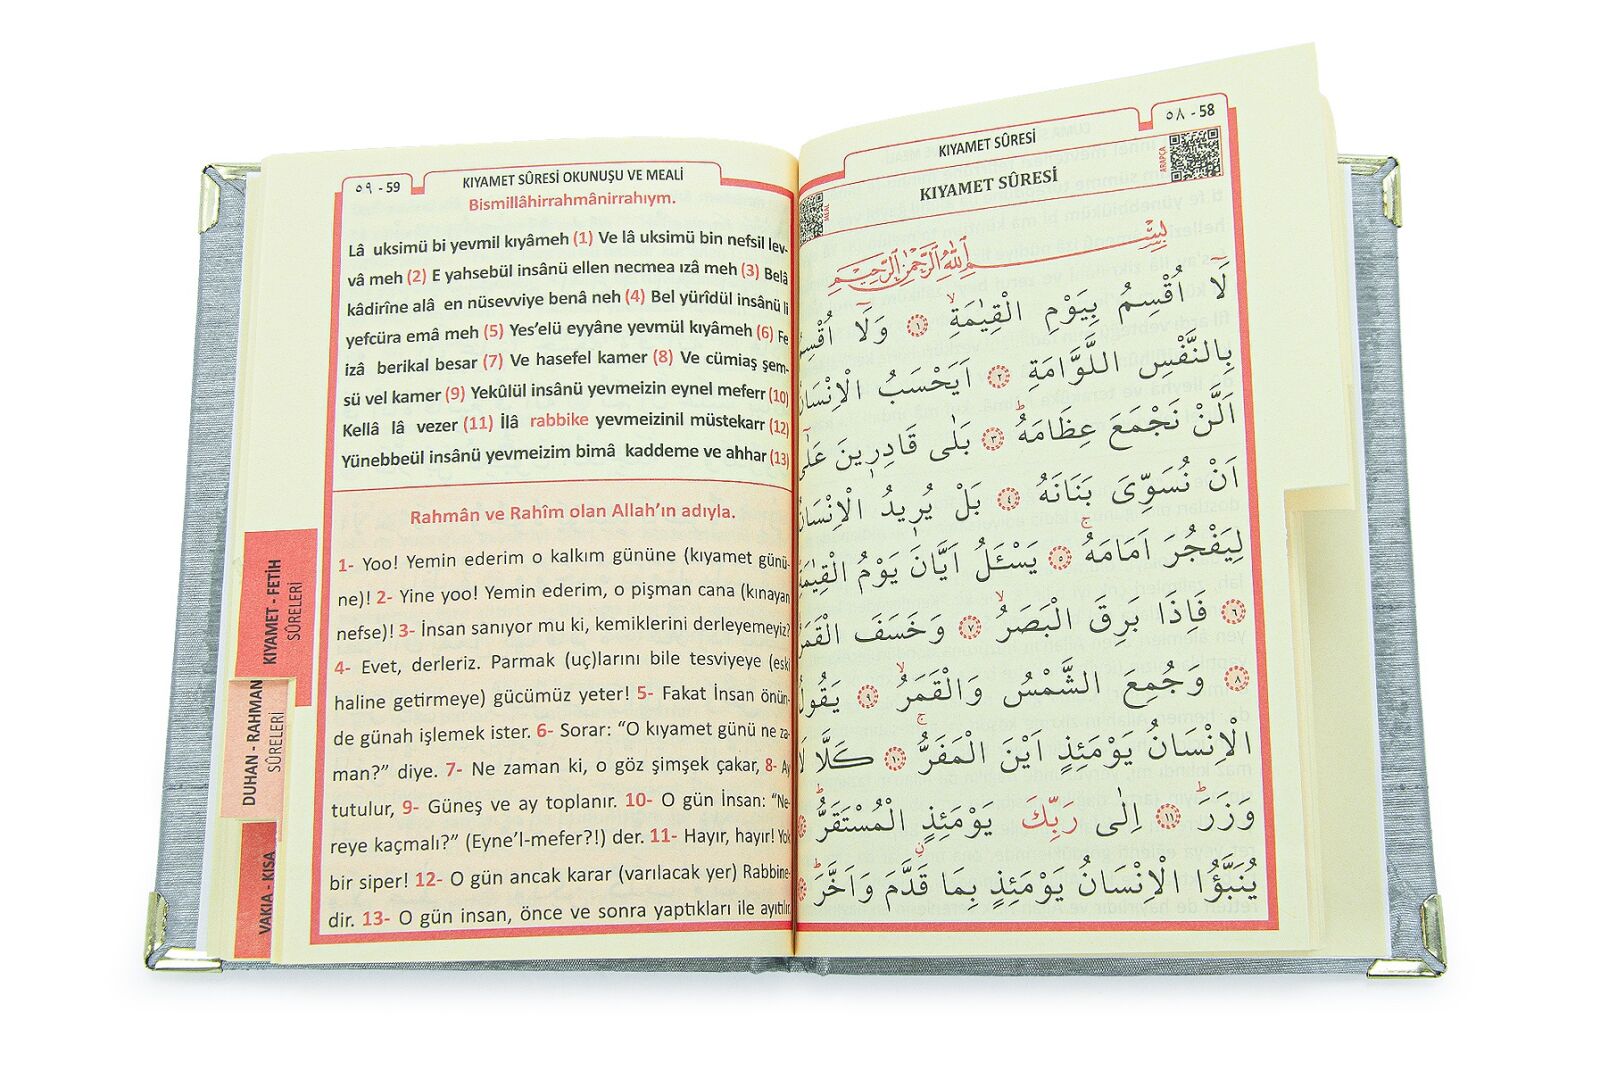 ٥٩ - 59
KIYAMET SÛRESİ OKUNUŞU VE MEALİ
Bismillâhirrahmânirrahıym.
Lâ uksimü bi yevmil kıyâmeh (1) Ve lâ uksimü bin nefsil lev-
vâ meh (2) E yahsebül insânü ellen necmea ızâ meh (3) Belâ
kâdirîne alâ en nüsevviye benâ neh (4) Bel yürîdül insânü li
yefcüra emâ meh (5) Yes'elü eyyâne yevmül kıyâmeh (6) Fe
izâ berikal besar (7) Ve hasefel kamer (8) Ve cümiaş şem-
sü vel kamer (9) Yekûlül insânü yevmeizin eynel meferr (10)
Kellâ lâ vezer (11) İlâ rabbike yevmeizinil müstekarr (12)
Yünebbeül insânü yevmeizim bimâ kaddeme ve ahhar (13)
Rahmân ve Rahîm olan Allah'ın adıyla.
1- Yoo! Yemin ederim o kalkım gününe (kıyamet günü-
ne)! 2- Yine yoo! Yemin ederim, o pişman cana (kınayan
nefse)! 3- İnsan sanıyor mu ki, kemiklerini derleyemeyiz?
4- Evet, derleriz. Parmak (uç)larını bile tesviyeye (eski
haline getirmeye) gücümüz yeter! 5- Fakat İnsan önün-
de günah işlemek ister. 6- Sorar: “O kıyamet günü ne za-
man?” diye. 7- Ne zaman ki, o göz şimşek çakar, 8- Ay
tutulur, 9- Güneş ve ay toplanır. 10- O gün İnsan: “Ne-
reye kaçmalı?” (Eyne'l-mefer?!) der. 11- Hayır, hayır! Yok
bir siper! 12- O gün ancak karar (varılacak yer) Rabbine-
dir. 13- O gün insan, önce ve sonra yaptıkları ile ayıtılır.
KIYAMET - FETİH
SÛRELERİ
DUHAN - RAHMAN
SÛRELERİ
VAKIA - KISA
٥٨ - 58
KIYAMET SÛRESİ
KIYAMET SÛRESİ
MEAL
ARAPÇA
بِسْمِ اللّٰهِ الرَّحْمٰنِ الرَّح۪يمِ
لَٓا اُقْسِمُ بِيَوْمِ الْقِيٰمَةِۙ ﴿١﴾ وَلَٓا اُقْسِمُ
بِالنَّفْسِ اللَّوَّامَةِ ﴿٢﴾ اَيَحْسَبُ الْاِنْسَانُ
اَلَّنْ نَجْمَعَ عِظَامَهُۜ ﴿٣﴾ بَلٰى قَادِر۪ينَ عَلٰٓى
اَنْ نُسَوِّىَ بَنَانَهُ ﴿٤﴾ بَلْ يُر۪يدُ الْاِنْسَانُ
لِيَفْجُرَ اَمَامَهُۚ ﴿٥﴾ يَسْـَٔلُ اَيَّانَ يَوْمُ الْقِيٰمَةِ
﴿٦﴾ فَاِذَا بَرِقَ الْبَصَرُۙ ﴿٧﴾ وَخَسَفَ الْقَمَرُ
﴿٨﴾ وَجُمِعَ الشَّمْسُ وَالْقَمَرُۙ ﴿٩﴾ يَقُولُ
الْاِنْسَانُ يَوْمَئِذٍ اَيْنَ الْمَفَرُّۚ ﴿١٠﴾ كَلَّا لَا
وَزَرَۜ ﴿١١﴾ اِلٰى رَبِّكَ يَوْمَئِذٍ الْمُسْتَقَرُّۜ
يُنَبَّؤُا الْاِنْسَانُ يَوْمَئِذٍ بِمَا قَدَّمَ وَاَخَّرَۜ